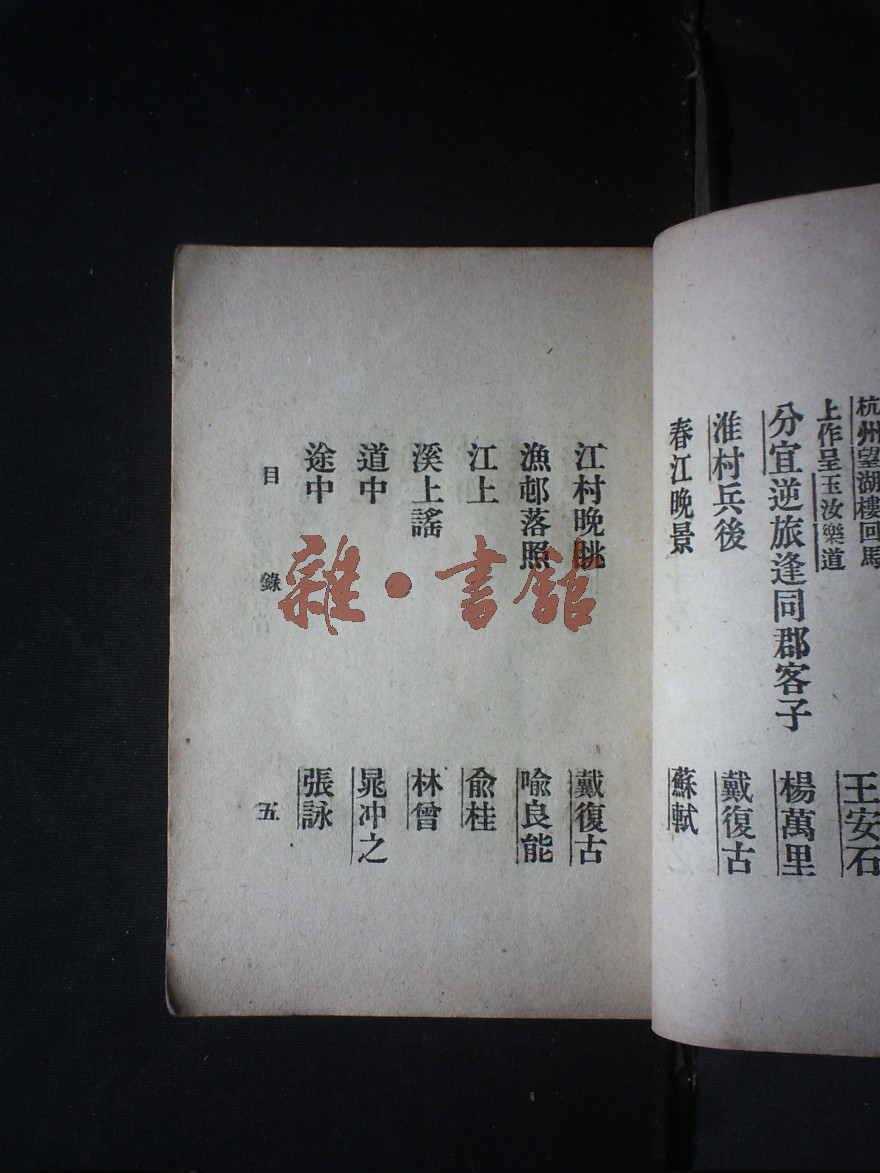 杭州望湖樓回馬
上作呈玉汝樂道
王安石
分宜逆旅逢同郡客子
楊萬里
淮村兵後
戴復古
春江晚景
蘇軾
江村晚眺
戴復古
漁邨落照
喻良能
江上
俞桂
溪上謠
林曾
道中
晁冲之
途中
張詠
目錄
五
雜·書館